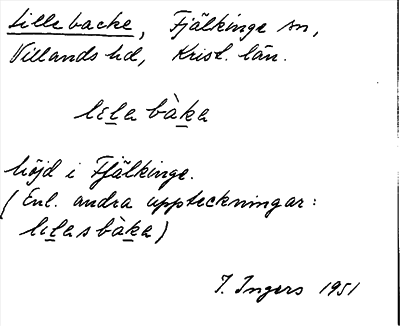 Lillebacke, Fjälkinge sn,
Villands hd, Krist. län.
lila bàka
höjd i Fjälkinge.
(Enl. andra uppteckningar:
lilas bàka)
I. Ingers 1951